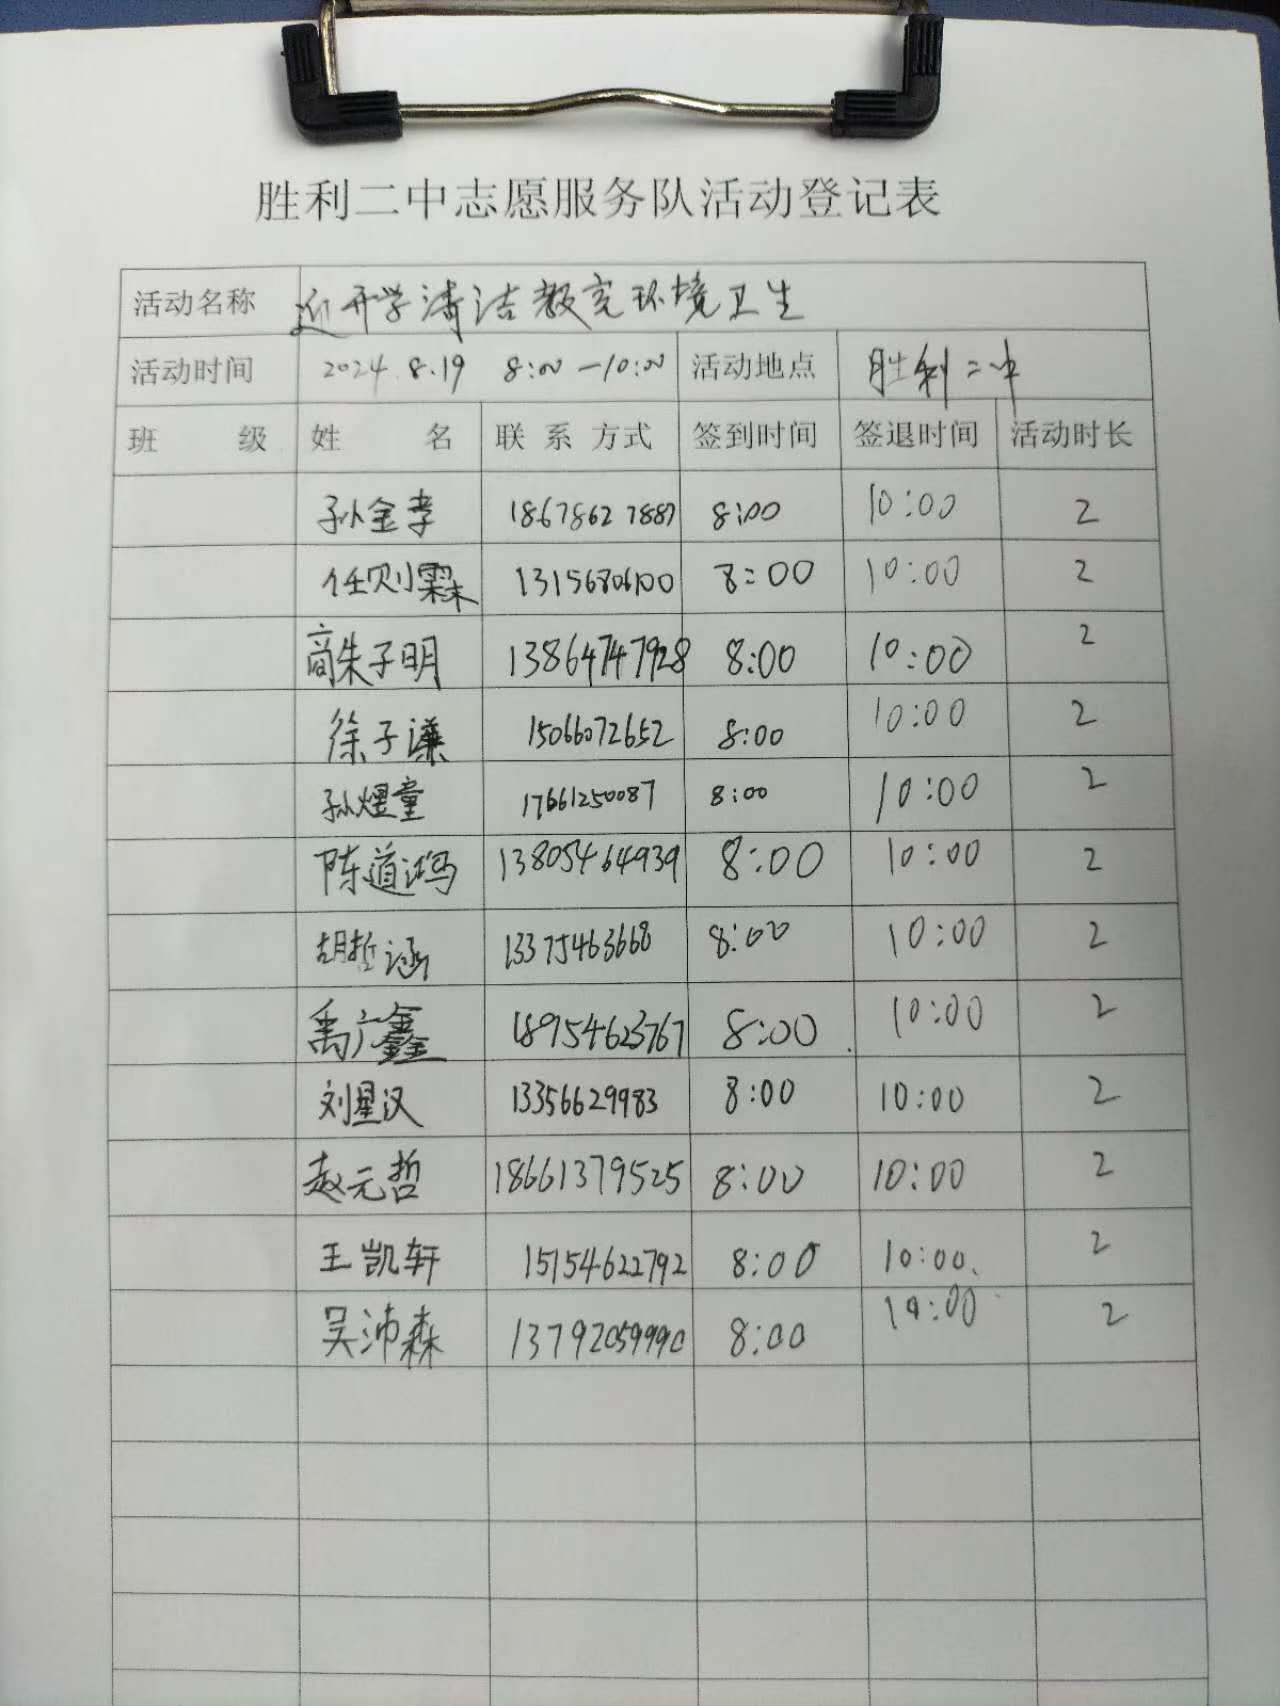 胜利二中志愿服务队活动登记表
活动名称 迎开学清洁教室环境卫生
活动时间 2024.8.19 8:00—10:00 活动地点 胜利二中
班 级 姓 名 联 系 方式 签到时间 签退时间 活动时长
孙金孝 18678627887 8:00 10:00 2
任则霖 13156806100 8:00 10:00 2
商朱子明 13864747928 8:00 10:00 2
徐子谦 15066072652 8:00 10:00 2
孙煜童 17661250087 8:00 10:00 2
陈道鸿 13805464939 8:00 10:00 2
胡哲涵 13375463668 8:00 10:00 2
禹广鑫 18954623767 8:00 10:00 2
刘星汉 13356629983 8:00 10:00 2
赵元哲 18661379525 8:00 10:00 2
王凯轩 15154622792 8:00 10:00 2
吴沛森 13792059990 8:00 10:00 2